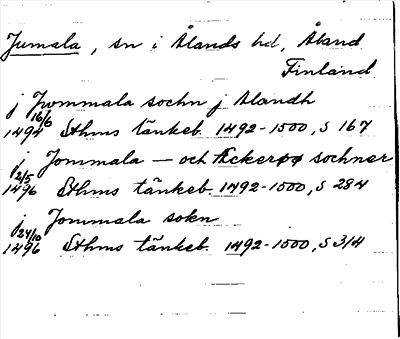 Jumala, sn i Ålands hd, Åland
Finland
j Jwmmala sochn j Alandh
16/6
1494 Sthms tänkeb. 1492-1500, S 167
j Jommala — och Ackerøø sochner
2/5
1496 Sthms tänkeb. 1492-1500, S 284
j Jommala sokn
24/10
1496 Sthms tänkeb. 1492-1500, S 314